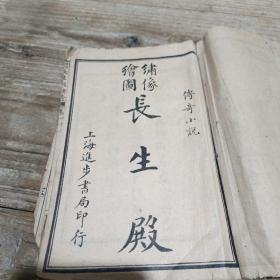 傳奇小説
繡像
繪圖
長生殿
上海進步書局印行